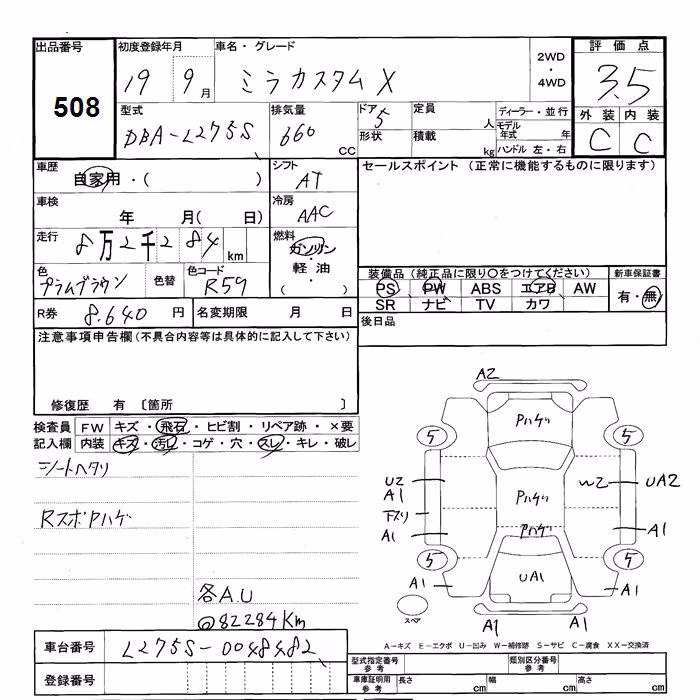 出品番号 初度登録年月 車名・グレード 評価点
508 19 9月 ミラカスタムX 2WD・4WD 3.5
型式 排気量 ドア 定員 ディーラー・並行 外装 内装
DBA-L275S 660 CC 5 人 モデル年式 年 C C
形状 積載 kg ハンドル 左・右
車歴 シフト セールスポイント (正常に機能するものに限ります)
自家用・( ) AT
車検 年 月( 日) 冷房 AAC
走行 8万2千284 km 燃料 ガソリン・軽油・( )
色 色替 色コード 装備品(純正品に限り○をつけてください) 新車保証書
プラムブラウン R59 PS PW ABS エアB AW 有・無
SR ナビ TV カワ
R券 8.640 円 名変期限 月 日 後日品
注意事項申告欄(不具合内容等は具体的に記入して下さい)
修復歴 有 〔箇所 〕
検査員 FW キズ・飛石・ヒビ割・リペア跡・×要
記入欄 内装 キズ・汚レ・コゲ・穴・スレ・キレ・破レ
シートヘタリ
RスポPハゲ
各A.U
@82284Km
A2
Pハゲリ
5 5
U2 A1 Pハゲリ W2 UA2
下スリ
A1 Pハゲリ A1
5 5
A1 UA1 A1
スペア
A1 A1
A-キズ E-エクボ U-凹み W-補修跡 S-サビ C-腐食 XX-交換済
車台番号 L275S-0048482
型式指定番号 参考 類別区分番号 参考
登録番号 車庫証明用 参考 長さ cm 幅 cm 高さ cm